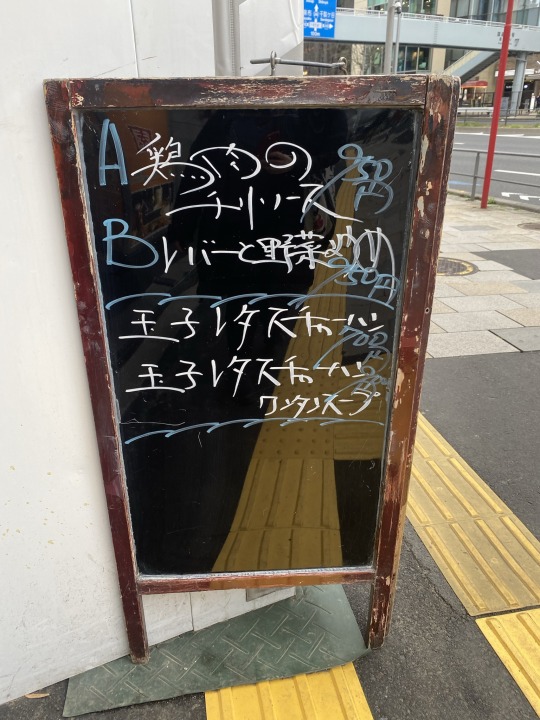 A 鶏肉の 950円
チリソース
B レバーと野菜炒め 950円
玉子レタスチャーハン 700円
玉子レタスチャーハン
ワンタンスープ